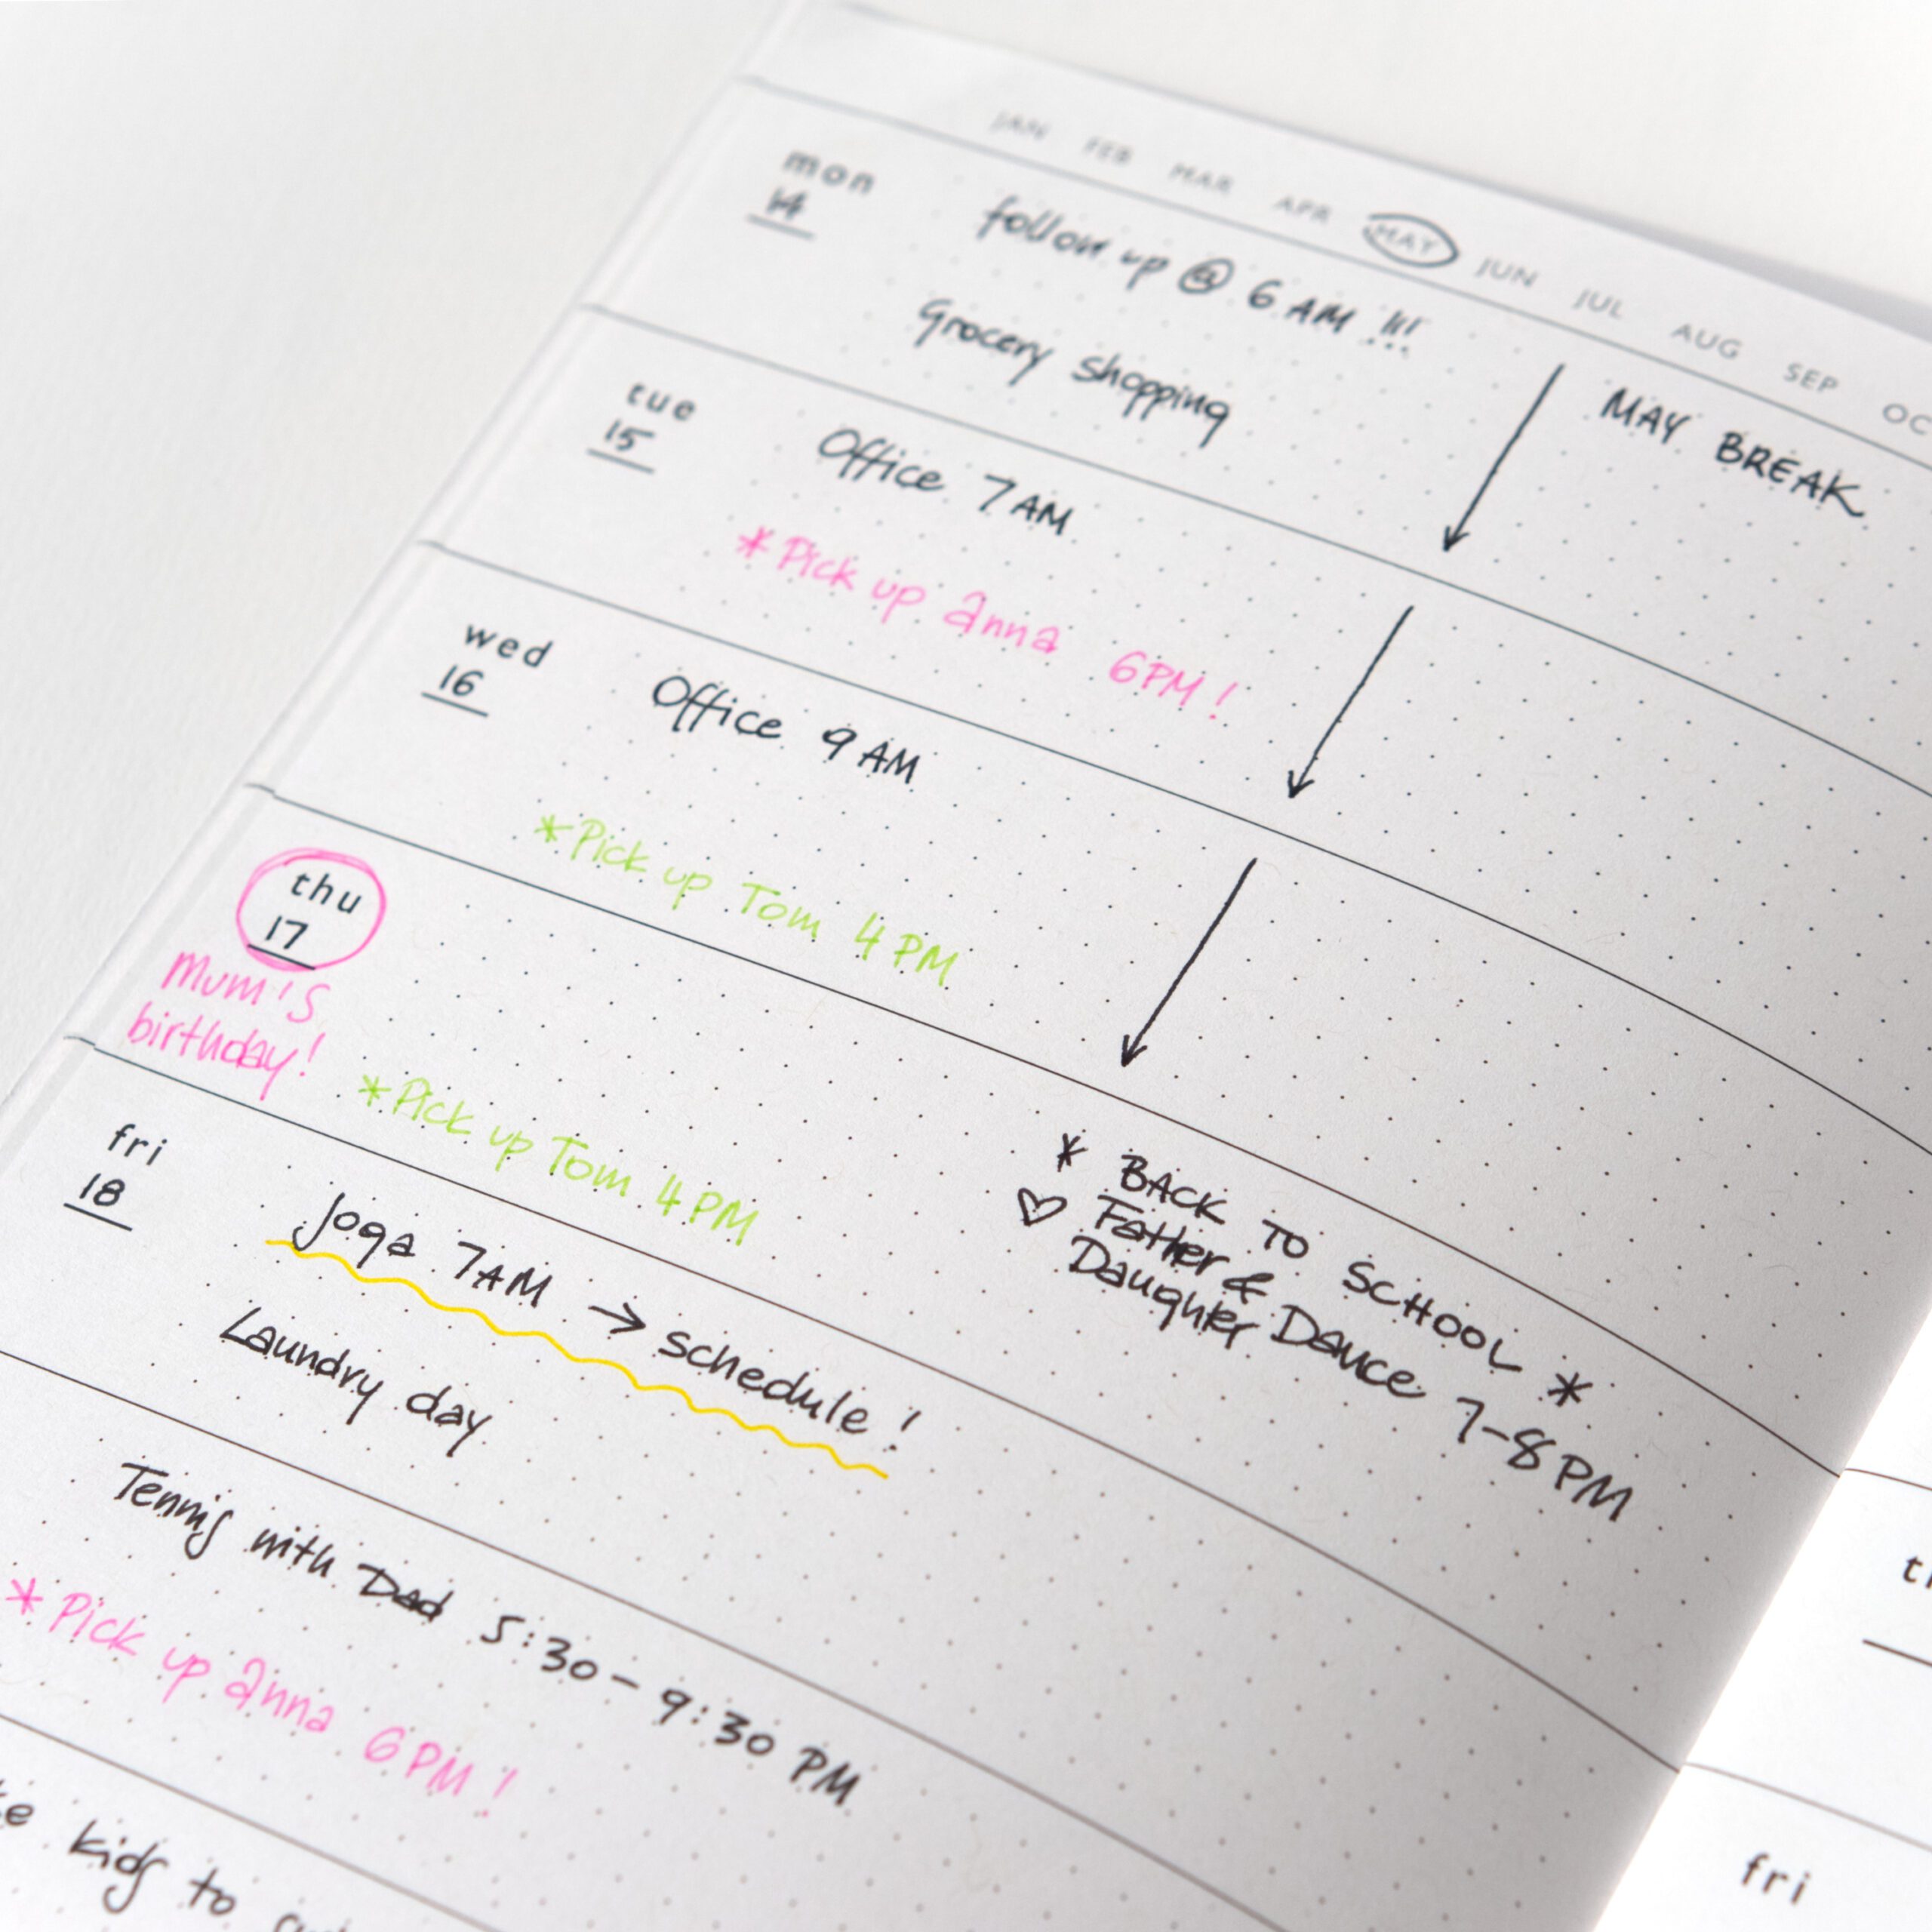 JAN FEB MAR APR MAY JUN JUL AUG SEP
mon
14
follow up @ 6 AM !!!
Grocery shopping
MAY BREAK
tue
15
Office 7 AM
*Pick up anna 6PM!
wed
16
Office 9 AM
*Pick up Tom 4 PM
thu
17
Mum's
birthday!
*Pick up Tom 4 PM
* BACK TO SCHOOL *
♡ Father &
Daughter Dance 7-8 PM
fri
18
Joga 7AM → schedule!
Laundry day
Tennis with Dad 5:30 - 9:30 PM
*Pick up anna 6PM!
kids to
fri